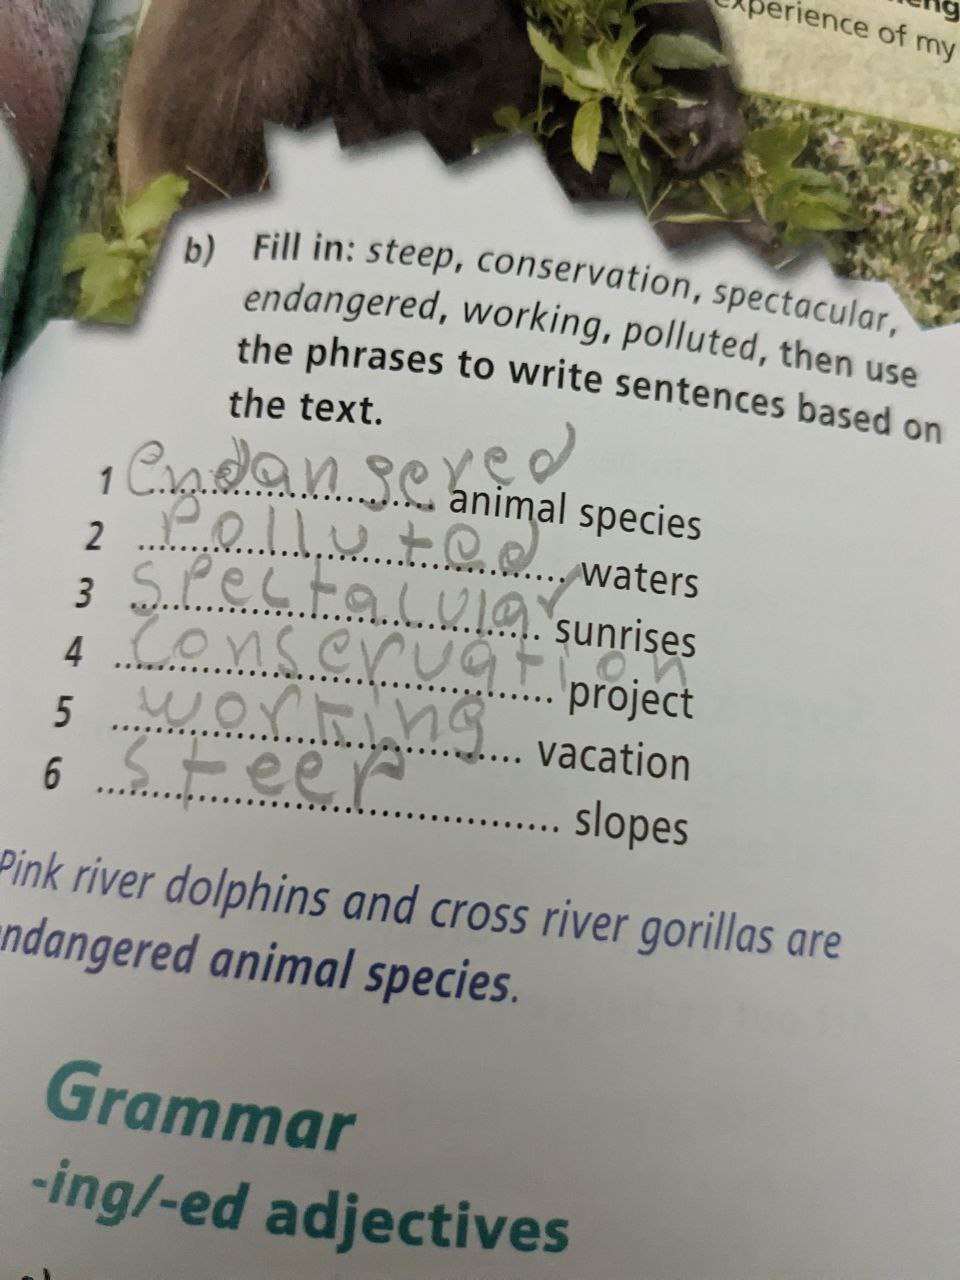 xperience of my
b) Fill in: steep, conservation, spectacular,
endangered, working, polluted, then use
the phrases to write sentences based on
the text.
1 endangered animal species
2 polluted waters
3 spectacular sunrises
4 conservation project
5 working vacation
6 steep slopes
Pink river dolphins and cross river gorillas are
ndangered animal species.
Grammar
-ing/-ed adjectives